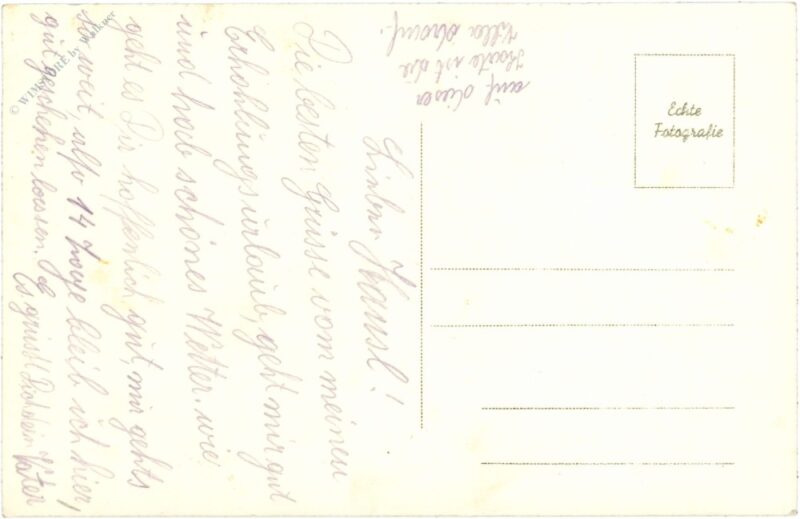 auf dieser
Karte ist die
Villa drauf.
Lieber Hansl!
Die besten Grüsse vom meinen
Erhohlungsurlaub, geht mir gut
und hab schönes Wetter. wie
geht es Dir hoffentlich gut, mir gehts
so weit, also 14 Tage bleib ich hier,
gut geschehen lassen.
Es grüsst Dich dein Vater
Echte
Fotografie